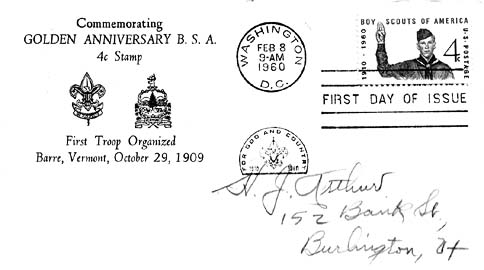 Commemorating
GOLDEN ANNIVERSARY B. S. A.
4c Stamp
First Troop Organized
Barre, Vermont, October 29, 1909
WASHINGTON
FEB 8
9-AM
1960
D.C.
BOY SCOUTS OF AMERICA
1910-1960
4¢
U.S. POSTAGE
FIRST DAY OF ISSUE
FOR GOD AND COUNTRY
1910 1960
H. J. Arthur
152 Bank St.,
Burlington, Vt